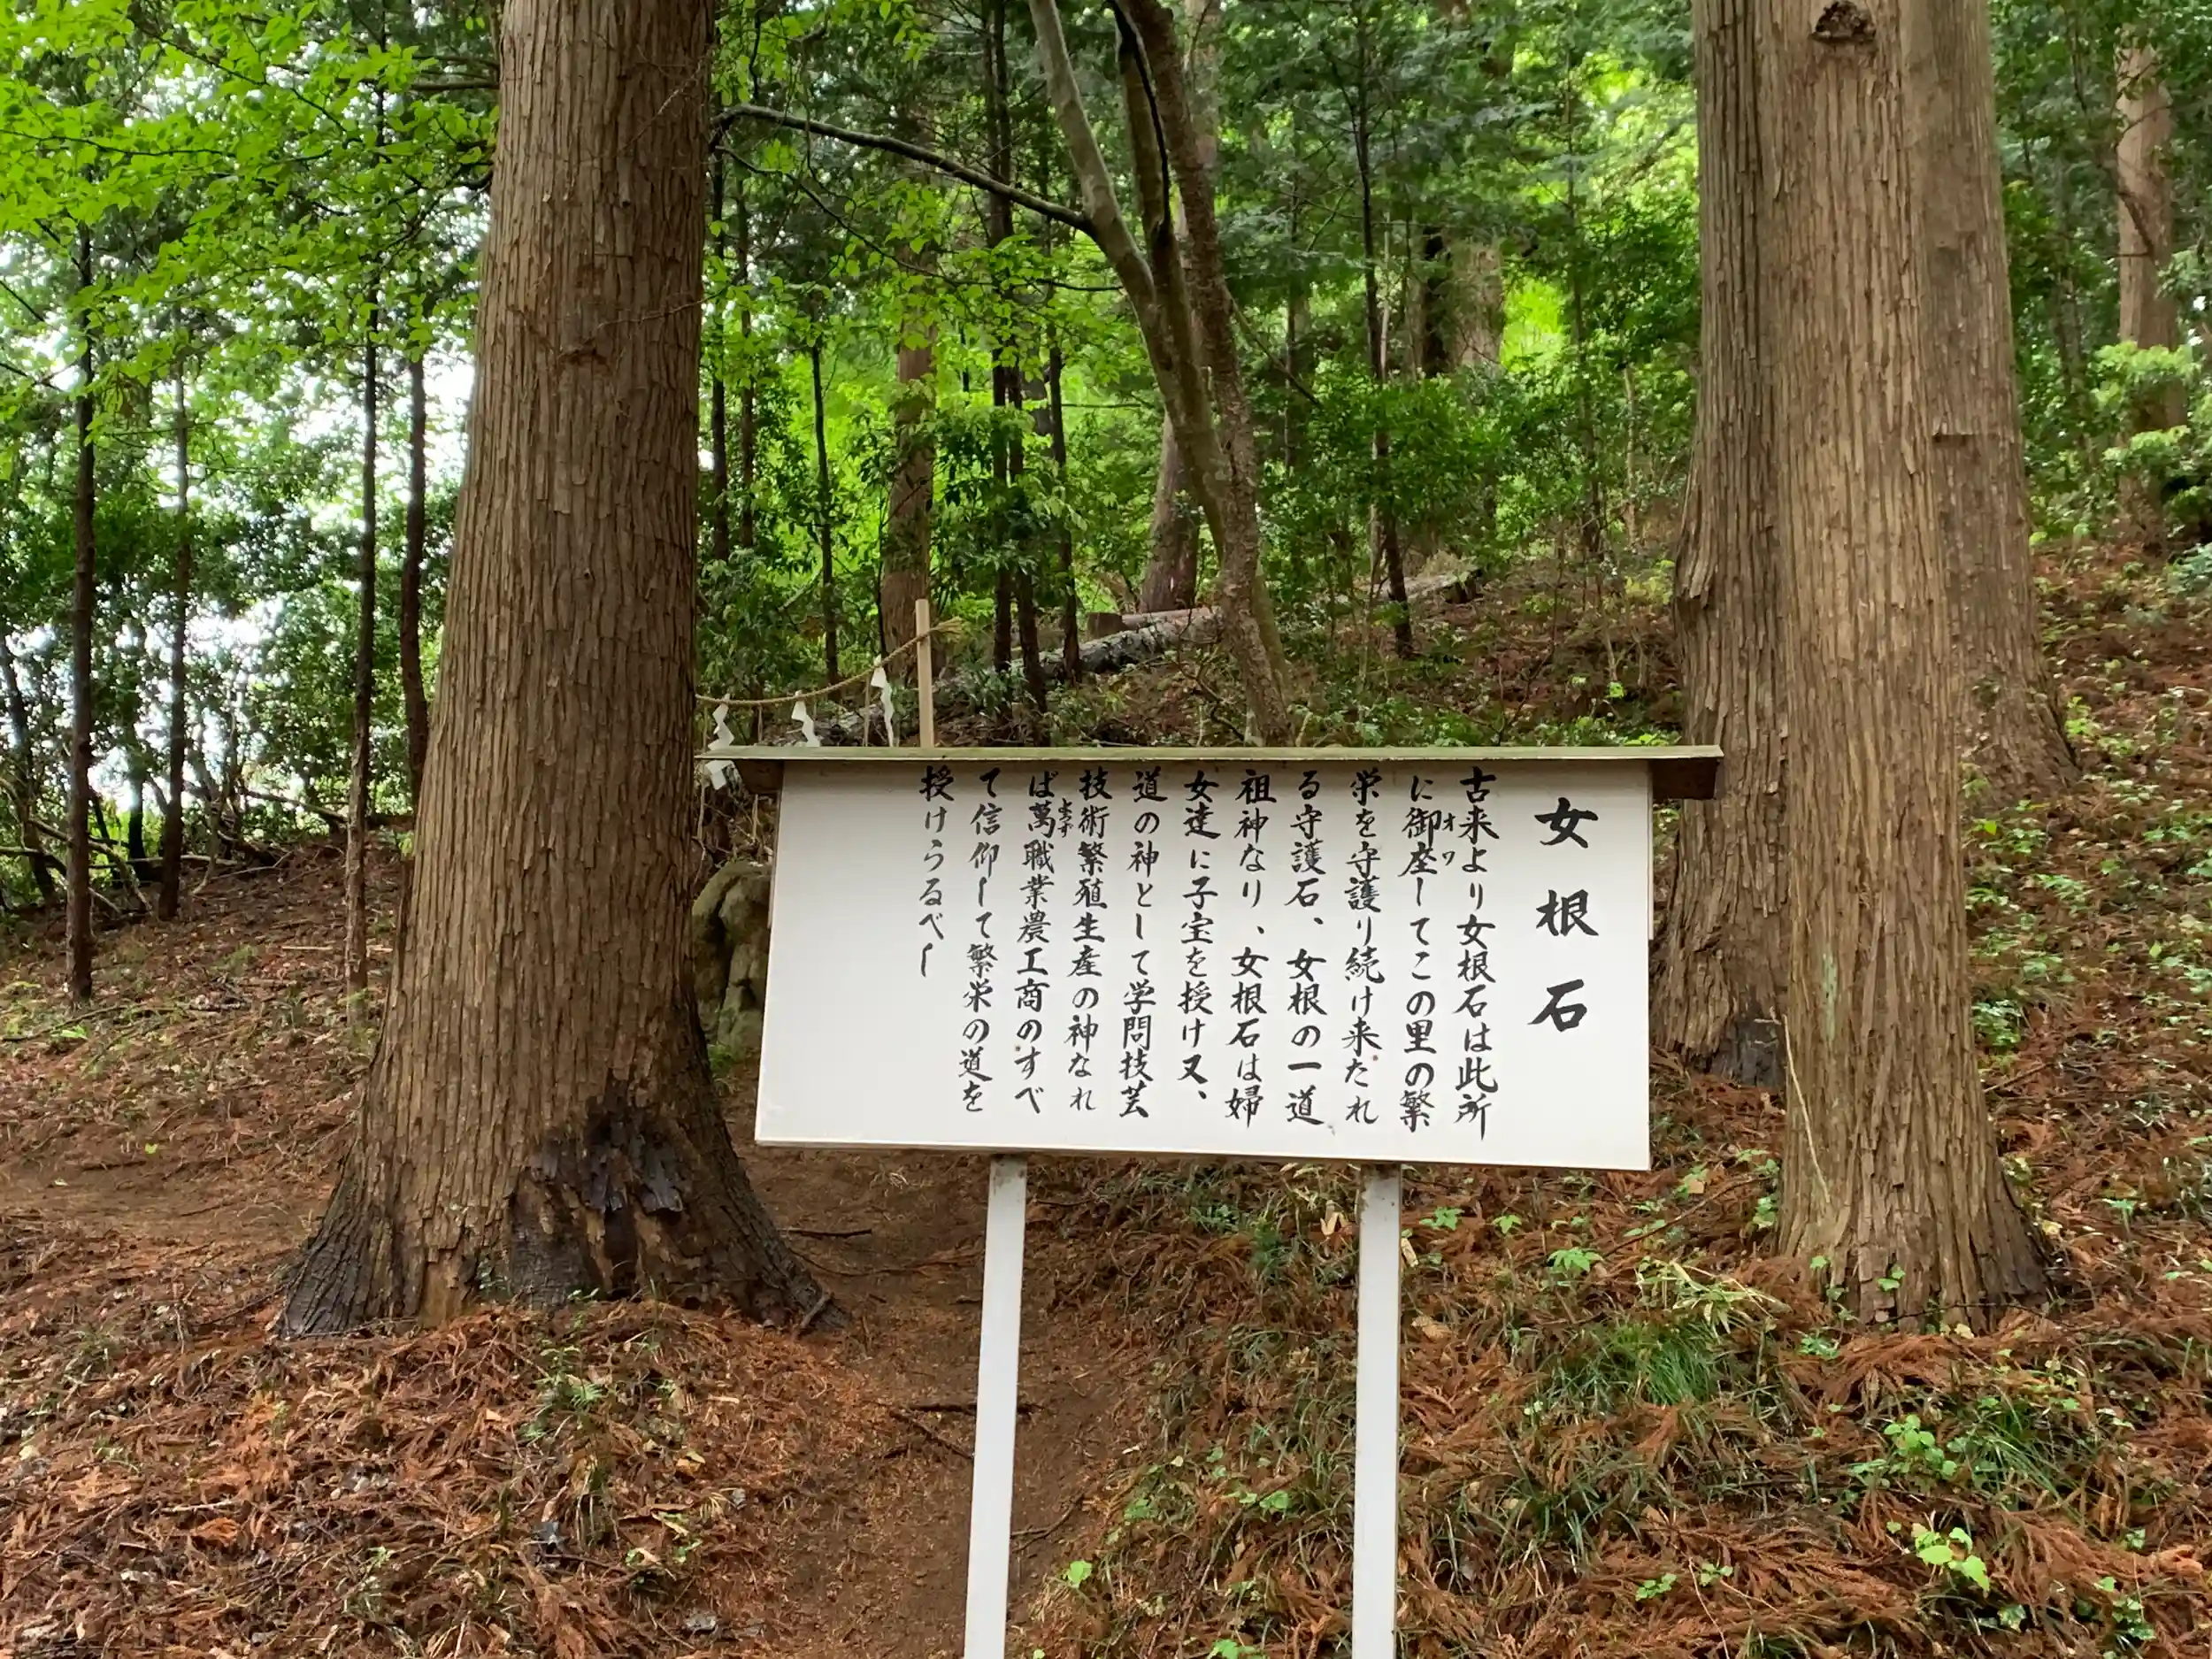 女根石
古来より女根石は此所
に御座してこの里の繁
栄を守護り続け来たれ
る守護石、女根の一道
祖神なり、女根石は婦
女達に子宝を授け又、
道の神として学問技芸
技術繁殖生産の神なれ
ば萬職業農工商のすべ
て信仰して繁栄の道を
授けらるべし